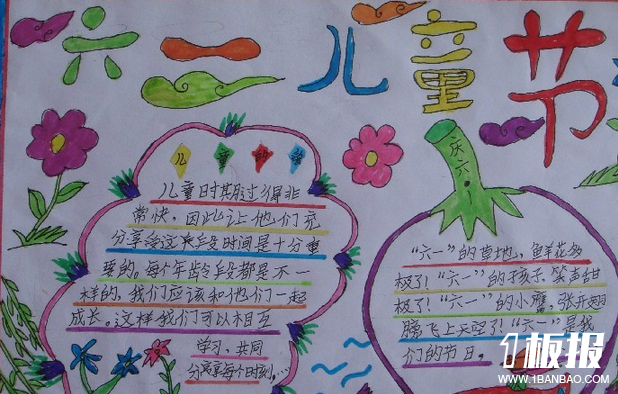 六一儿童节
儿童的梦
儿童时期过得非
常快，因此让他们充
分享受这段时间是十分重
要的。每个年龄段都是不一
样的，我们应该和他们一起
成长。这样我们可以相互
学习，共同
分享每个时刻，…
庆六一！
“六一”的草地，鲜花多
极了！“六一”的孩子，笑声甜
极了！“六一”的小鹰，张开翅
膀飞上天空了！“六一”是我
们的节日。
1板报
WWW.1BANBAO.COM